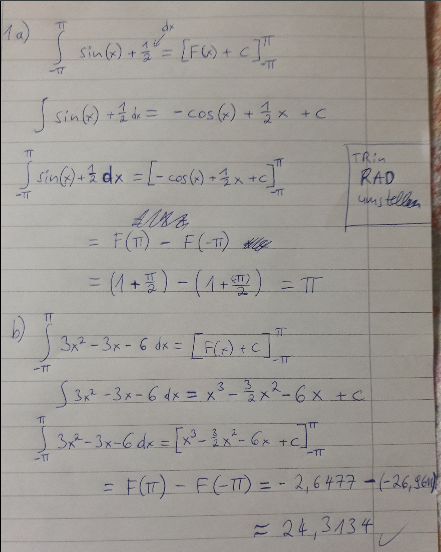 1a) ∫_{-π}^{π} sin(x) + 1/2 dx = [F(x) + C]_{-π}^{π}
∫ sin(x) + 1/2 dx = -cos(x) + 1/2 x + C
∫_{-π}^{π} sin(x) + 1/2 dx = [-cos(x) + 1/2 x + C]_{-π}^{π}
TR in
RAD
umstellen
= F(π) - F(-π)
= (1 + π/2) - (1 + (-π)/2) = π
b) ∫_{-π}^{π} 3x² - 3x - 6 dx = [F(x) + C]_{-π}^{π}
∫ 3x² - 3x - 6 dx = x³ - 3/2 x² - 6x + C
∫_{-π}^{π} 3x² - 3x - 6 dx = [x³ - 3/2 x² - 6x + C]_{-π}^{π}
= F(π) - F(-π) = -2,6477 - (-26,9611)
≈ 24,3134 ✓